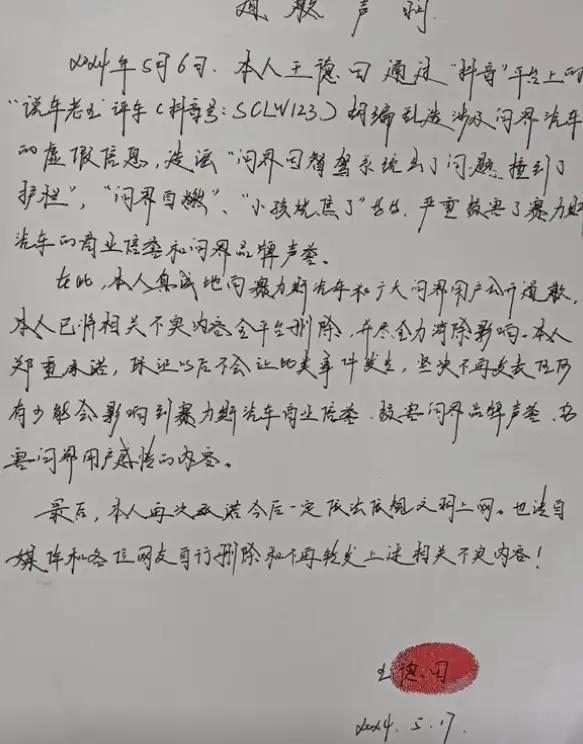 道歉声明
2024年5月6日，本人王德田通过“抖音”平台上的
“说车老王”评车（抖音号：SCLW123）胡编乱造涉及问界汽车
的虚假信息，造谣“问界因智驾系统出了问题，撞到了
护栏”，“问界自燃”、“小孩烧焦了”等等，严重损害了赛力斯
汽车的商业信誉和问界品牌声誉。
在此，本人真诚地向赛力斯汽车和广大问界用户公开道歉，
本人已将相关不实内容全平台删除，并尽全力消除影响。本人
郑重承诺，保证以后不会让此类事件发生，坚决不再发表任何
有可能会影响到赛力斯汽车商业信誉、损害问界品牌声誉、伤
害问界用户感情的内容。
最后，本人再次承诺今后一定依法依规文明上网。也请自
媒体和各位网友自行删除和不再转发上述相关不实内容！
王德田
2024.5.17.